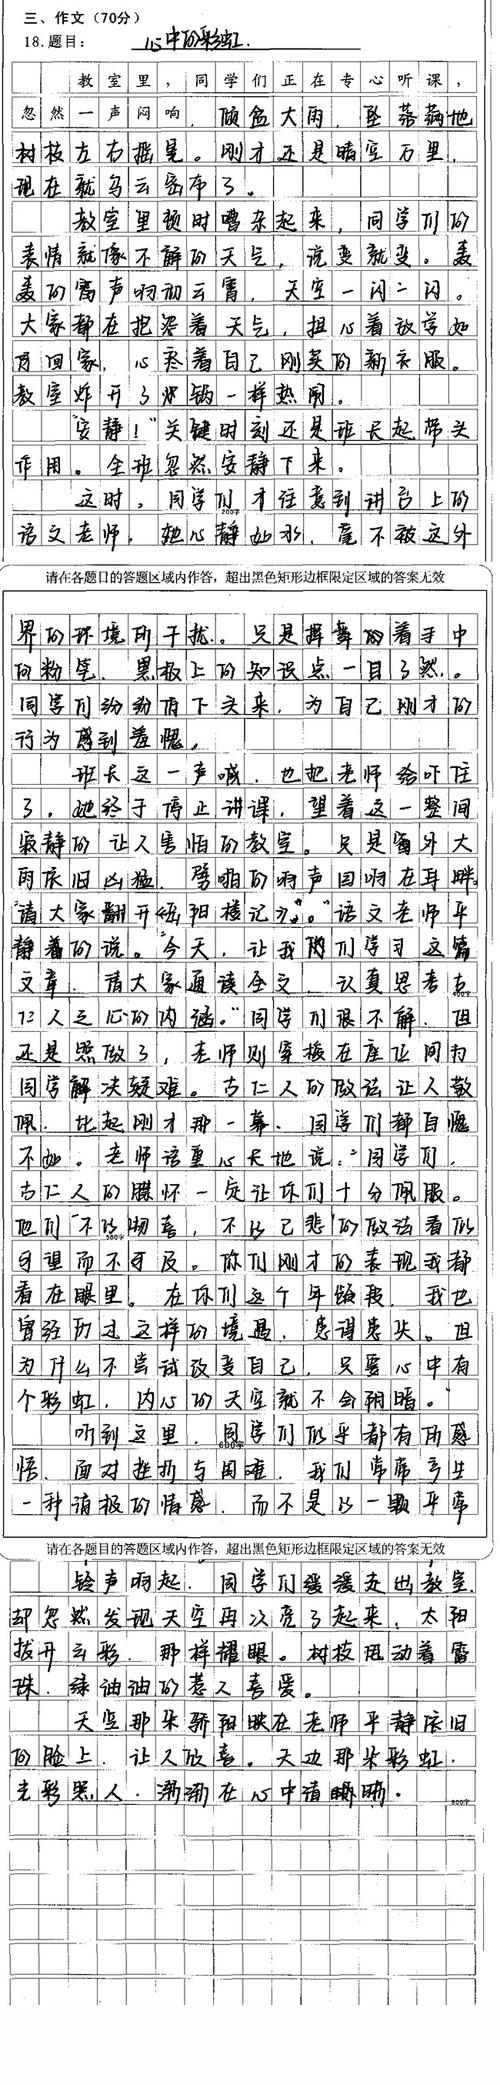 三、作文（70分）
18.题目：心中的彩虹.
教室里，同学们正在专心听课，
忽然一声闷响，倾盆大雨，坠落满地
树枝左右摇晃。刚才还是晴空万里，
现在就乌云密布了。
教室里顿时嘈杂起来，同学们的
表情就像不解的天气，说变就变。轰
轰的雷声响彻云霄，天空一闪一闪。
大家都在抱怨着天气，担心着放学如
何回家，心疼着自己刚买的新衣服。
教室炸开了火锅一样热闹。
"安静！"关键时刻还是班长起带头
作用。全班忽然安静下来。
这时，同学们才注意到讲台上的
200字
语文老师，她心静如水，毫不被这外
请在各题目的答题区域内作答，超出黑色矩形边框限定区域的答案无效
界的环境所干扰。只是挥舞的着手中
的粉笔，黑板上的知识点一目了然。
同学们纷纷有下头来，为自己刚才的
行为感到羞愧。
班长这一声喊，也把老师给吓住
了。她终于停止讲课，望着这一整间
寂静的让人害怕的教室。只是窗外大
雨依旧凶猛，劈啪的响声回响在耳畔。
"请大家翻开《岳阳楼记》。"语文老师平
静着的说。"今天，让我们学习这篇
文章，请大家通读全文，认真思考古
400字
仁人之心的内涵。"同学们很不解，但
还是照做了，老师则穿梭在座位间为
同学解决疑难。古仁人的做法让人敬
佩，比起刚才那一幕，同学们都自愧
不如。老师语重心长地说："同学们，
古仁人的胸怀一定让你们十分佩服。
他们'不以物喜，不以己悲'的做法看似
500字
可望而不可及。你们刚才的表现我都
看在眼里。在你们这个年龄段，我也
曾经历过这样的境遇，患得患失。但
为什么不尝试改变自己，只要心中有
个彩虹，内心的天空就不会阴暗。"
听到这里，同学们似乎都有所感
600字
悟，面对挫折与困难，我们常常产生
一种消极的情感，而不是以一颗平常
请在各题目的答题区域内作答，超出黑色矩形边框限定区域的答案无效
铃声响起，同学们缓缓走出教室，
却忽然发现天空再次亮了起来，太阳
拨开云彩，那样耀眼。树枝甩动着露
珠，绿油油的惹人喜爱。
天空那朵骄阳映在老师平静依旧
的脸上，让人欣喜。天边那朵彩虹，
光彩照人，渐渐在心中清晰。
800字